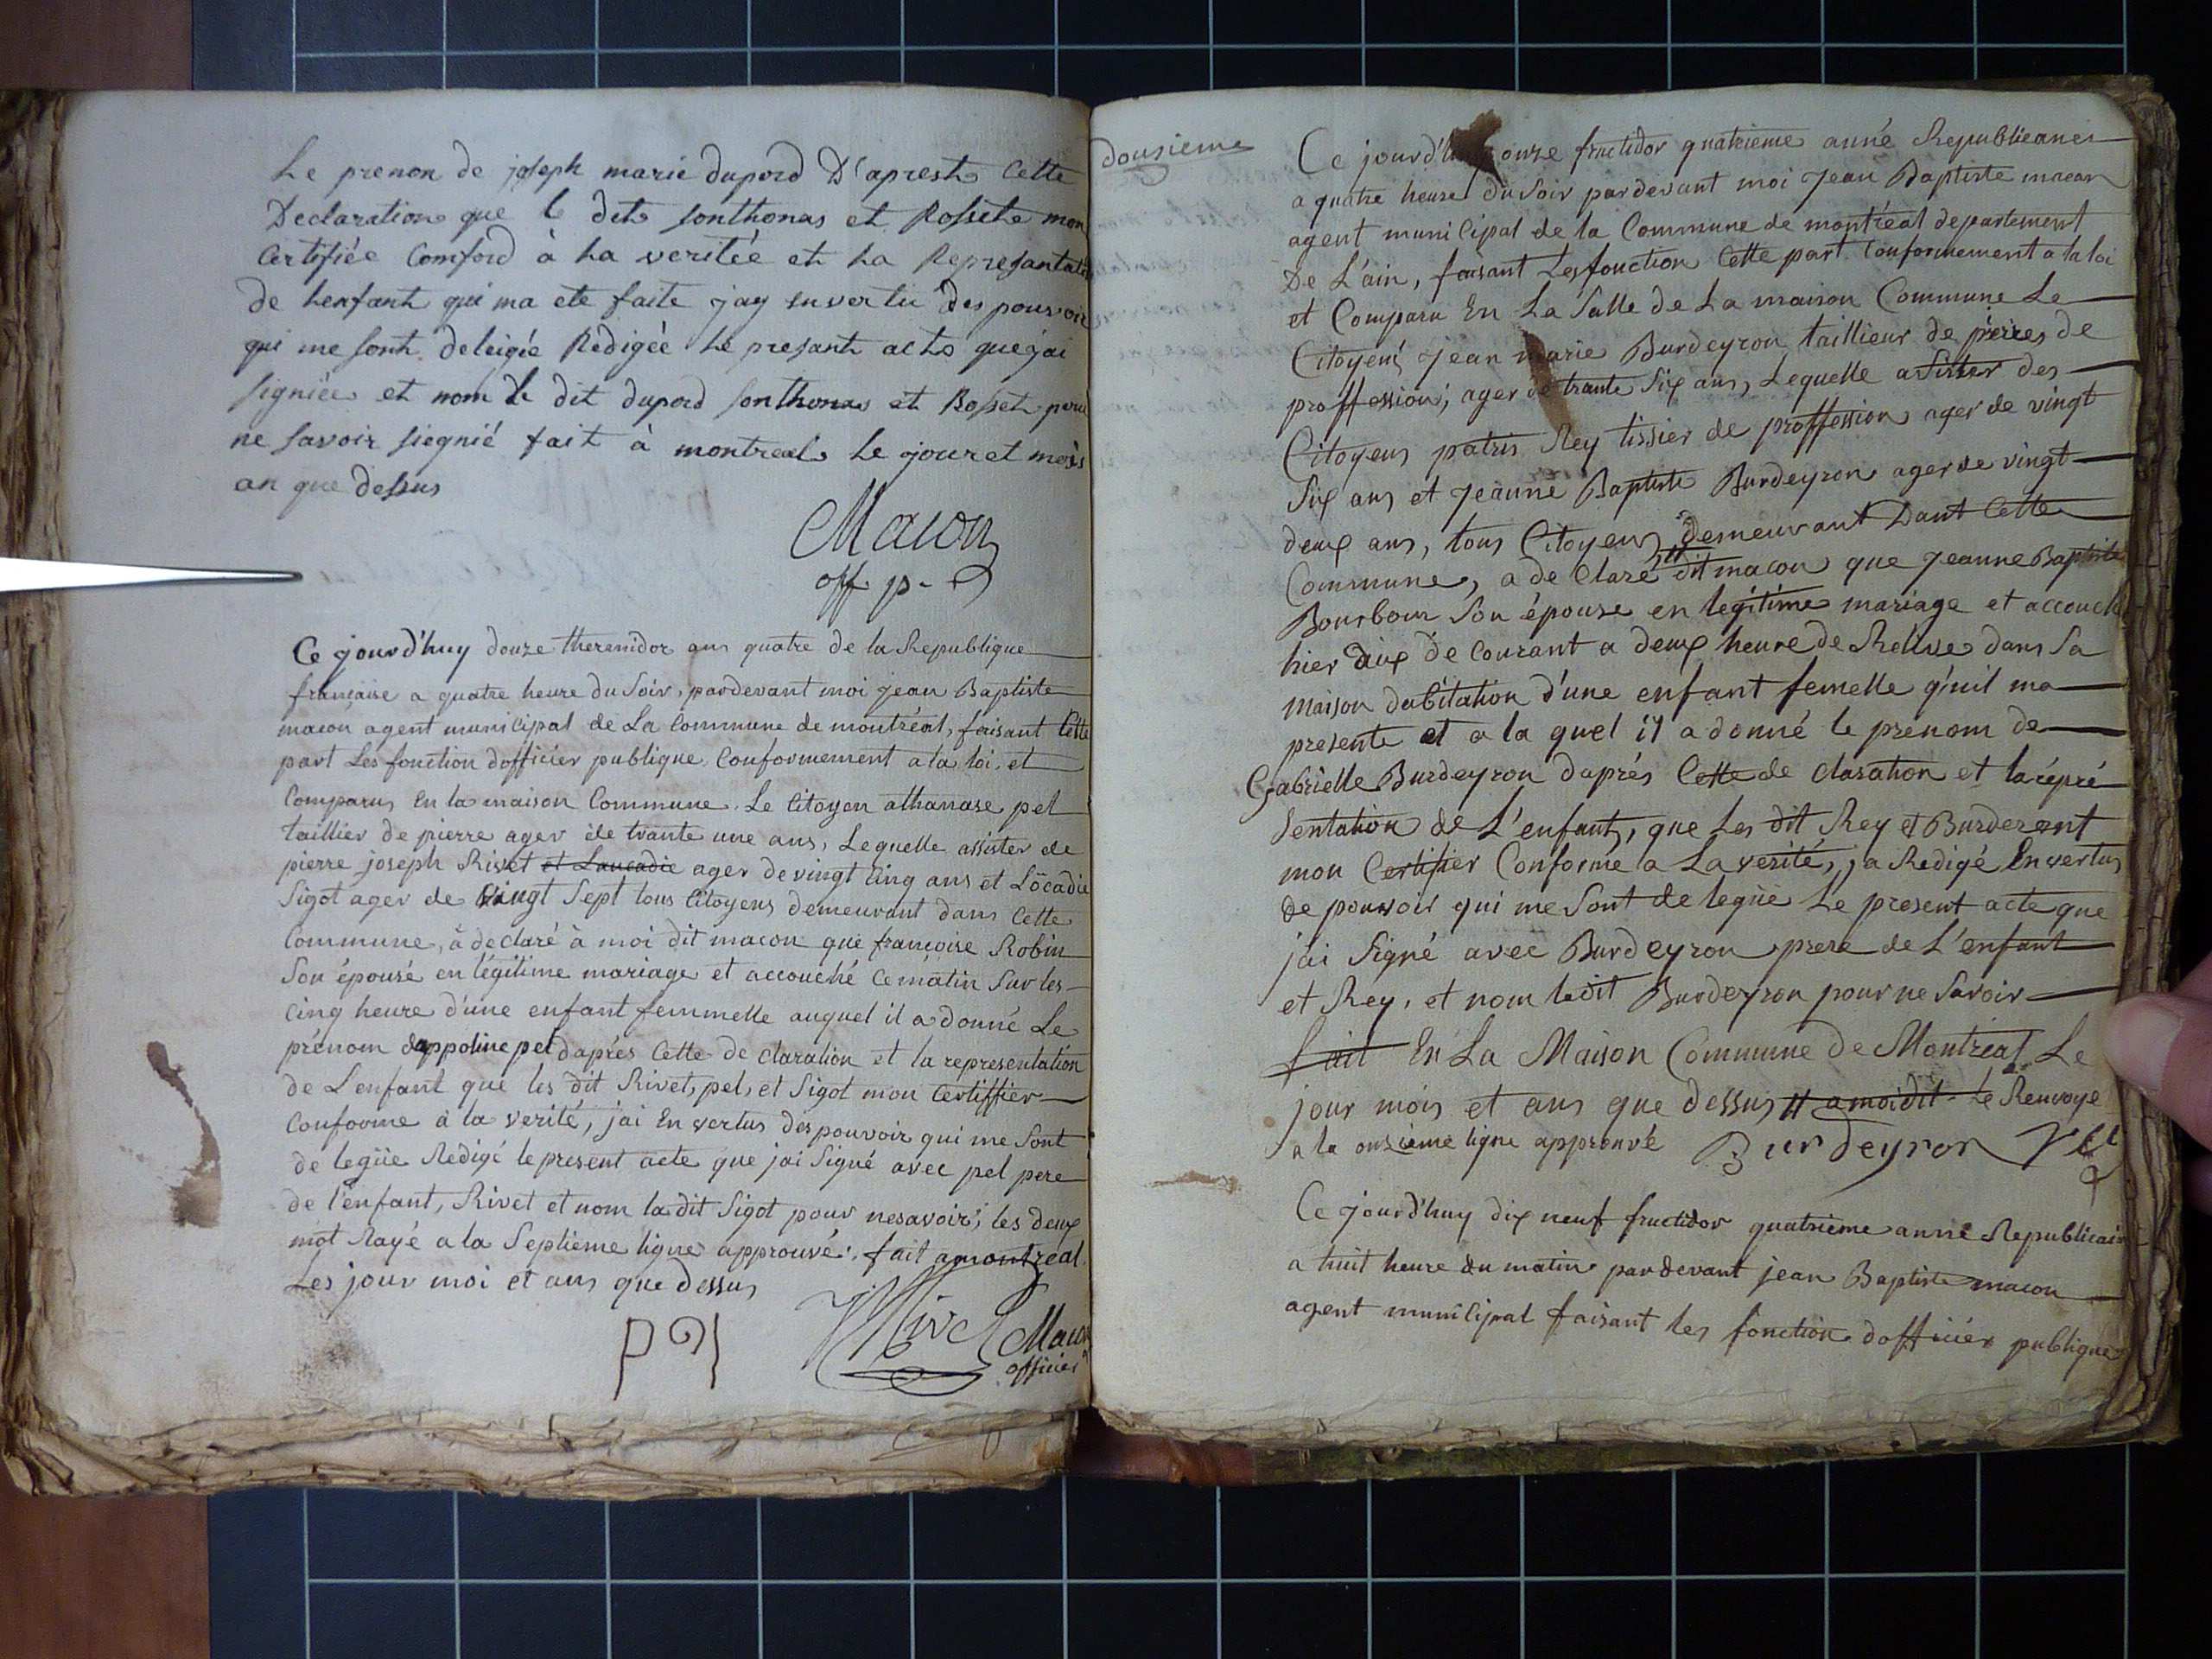 Le prenon de joseph marie dupord D'aprest Cette
Declaration que le dit sonthonas et Rosset mon
Certifiée Comford à La veritée et La Represantati
de Lenfant qui ma ete faite jay en vertu des pouvoir
qui me sont deleigée Rédigée Le present acte que jai
signiée et nom le dit dupord sonthonas et Rosset pour
ne savoir siegnié fait à montreal Le jour et mois
an que dessus
Macon
off p.
Ce jourd'huy douze thermidor ans quatre de la Republique
française a quatre heure du Soir, pardevant moi jean Baptiste
macon agent municipal de La Commune de montréal, faisant Cette
part Les fonction dofficier publique Conformement a la loi, et
Comparus En la maison Commune. Le Citoyen athanase pel
taillier de pierre ager de trante une ans, Lequelle assister de
pierre joseph Rivet et Laucadie ager de vingt Cinq ans et Löcadie
Sigot ager de vingt Sept tous Citoyens demeurant dans Cette
Commune, à declaré à moi dit macon que françoise Robin
Son épouse en légitime mariage et accouché ce matin Sur les
Cinq heure d'une enfant femmelle auquel il a donné Le
prénom dappoline pel daprés Cette de claration et la representation
de Lenfant que les dit Rivet, pel, et Sigot mon Certiffier
Conforme à la verité, j'ai En vertus des pouvoir qui me Sont
de legüe Redigé le present acte que jai Signé avec pel pere
de l'enfant, Rivet et nom ladit Sigot pour ne savoir; les deux
mot Rayé a la Septieme ligne approuvé. fait a montréal
Les jour moi et ans que dessus
Rivet Macon
officier
dousieme
Ce jourd'huy onze fructidor quatrieme année Republicanes
a quatre heure du Soir pardevant moi Jean Baptiste macon
agent municipal de la Commune de montréal departement
De L'ain, faisant Les fonction Cette part Conformement a la loi
et Comparu En La Salle de La maison Commune Le
Citoyens Jean marie Burdeyron taillieur de pierres de
proffession, ager de trante Six ans, Lequelle assister des
Citoyens patris Rey tissier de proffession ager de vingt
Six ans et Jeanne Baptiste Burdeyron ager de vingt
deux ans, tous Citoyens demeurant Dant Cette
Commune, a de Claré // dit macon que Jeanne Baptiste
Bourbon Son épouse en legitime mariage et accouché
hier dix de Courant a deux heure de Relevé dans Sa
maison dabitation d'une enfant femelle q'uil ma
presente et a la quel il a donné le prenom de
Gabrielle Burdeyron daprés Cette de claration et la répré
sentation de L'enfant, que Les dit Rey et Burderont
mon Certifier Conforme a La verité, ja Redigé En vertus
de pouvoir qui me Sont de legüe Le present acte que
j'ai Signé avec Burdeyron pere de L'enfant
et Rey, et nom ledit Burdeyron pour ne Savoir
fait En La Maison Commune de Montréal Le
jour mois et ans que dessus // a moi dit Le Renvoye
a la onzieme ligne approuvé Burdeyron
Ce jourd'huy dix neuf fructidor quatrieme année Republicain
a huit heure du matin pardevant jean Baptiste macon
agent municipal faisant les fonction dofficier publique